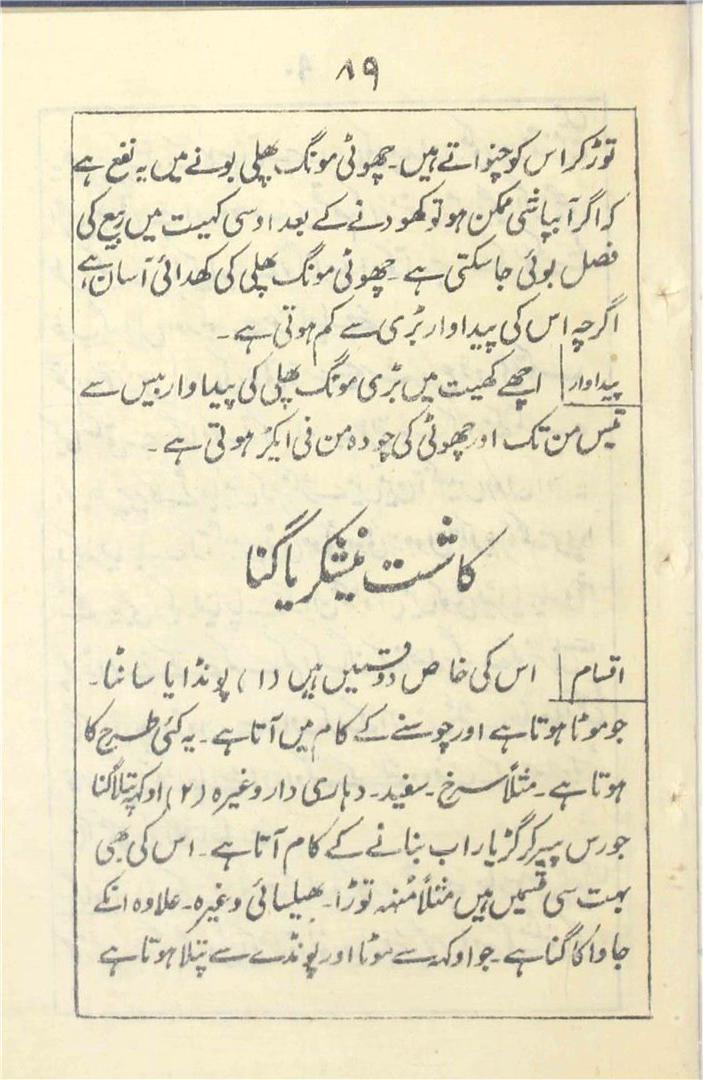 ۸۹
توڑ کر اس کو چنواتے ہیں۔ چھوٹی مونگ پھلی بونے میں یہ نفع ہے
کہ اگر آبپاشی ممکن ہو تو کھودنے کے بعد اوسی کھیت میں ربیع کی
فصل بوئی جا سکتی ہے۔ چھوٹی مونگ پھلی کی کھدائی آسان ہے
اگرچہ اس کی پیداوار بڑی سے کم ہوتی ہے۔
پیداوار | اچھے کھیت میں بڑی مونگ پھلی کی پیداوار بیس سے
تیس من تک اور چھوٹی کی چودہ من فی ایکڑ ہوتی ہے۔
کاشت نیشکر یا گنا
اقسام | اس کی خاص دو قسمیں ہیں (۱) پونڈا یا سانٹا۔
جو موٹا ہوتا ہے اور چوسنے کے کام میں آتا ہے۔ یہ کئی طرح کا
ہوتا ہے۔ مثلاً سرخ۔ سفید۔ دہاری دار وغیرہ (۲) اوکہہ پتلا گنا
جو رس پیر کر گڑ یا راب بنانے کے کام آتا ہے۔ اس کی بھی
بہت سی قسمیں ہیں مثلاً مُنہہ توڑا۔ بھیلسائی وغیرہ۔ علاوہ انکے
جاوا کا گنا ہے۔ جو اوکہہ سے موٹا اور پونڈے سے پتلا ہوتا ہے